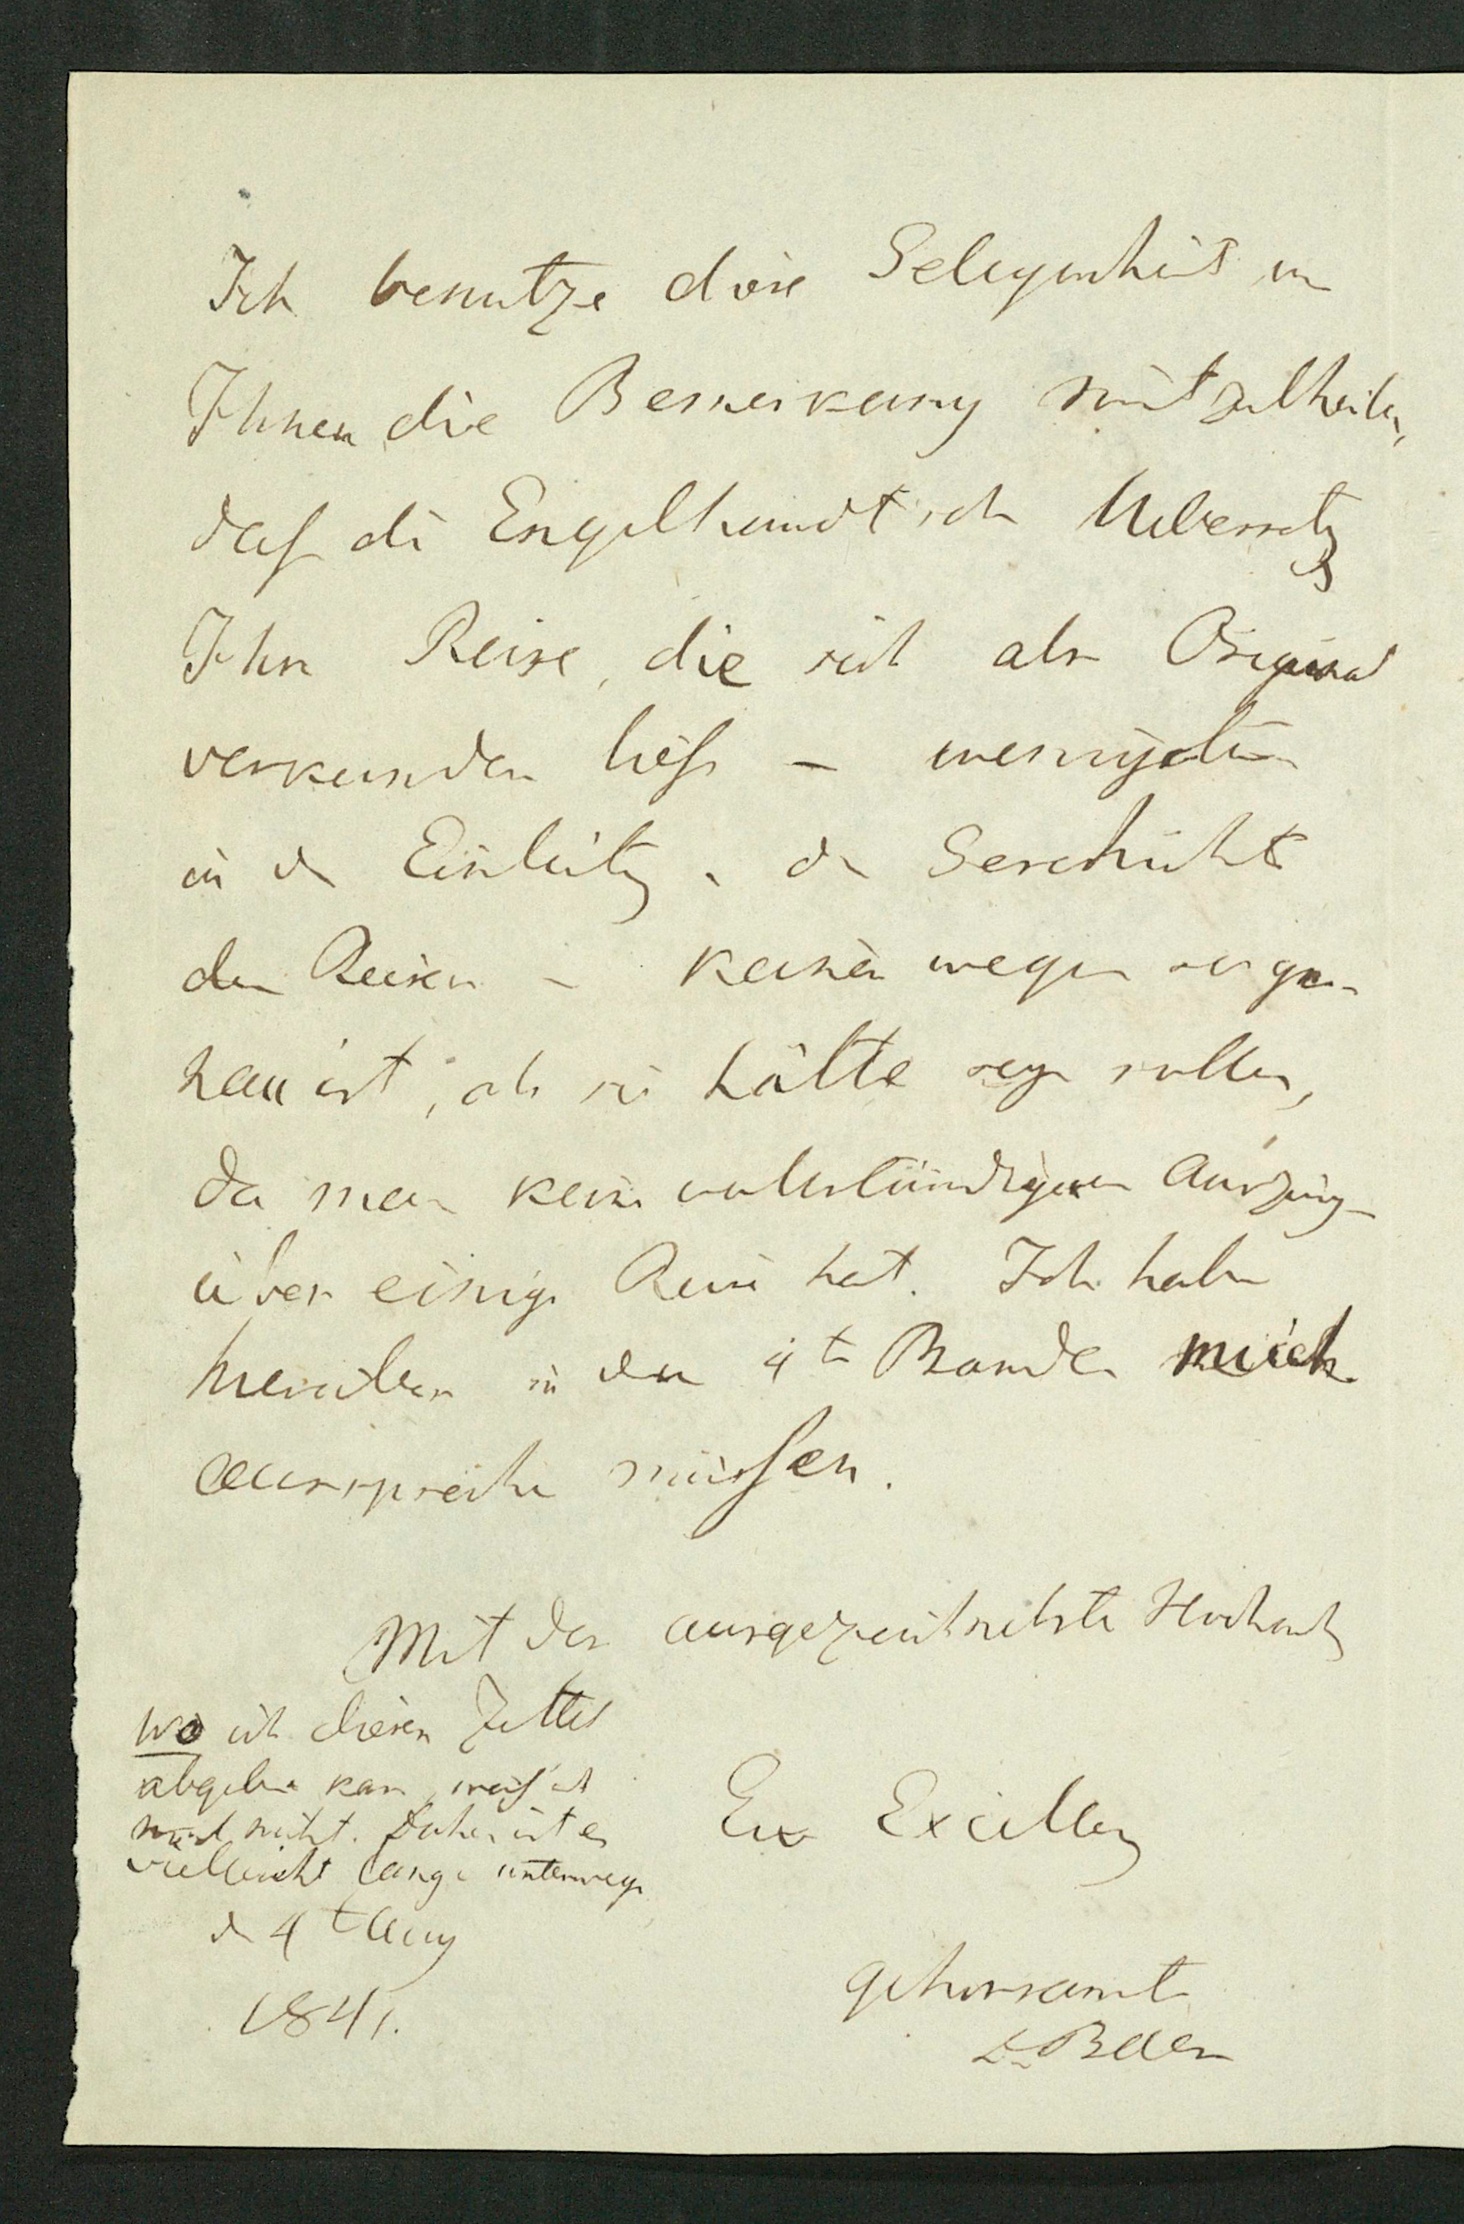 Ich benutze diese Gelegenheit um
Ihnen die Bemerkung mitzutheilen,
daß die Engelhardtsch Uebersetzg
Ihrer Reise, die sich als Original
verkünden ließ – wenigstens
in der Einleitg u. der Geschichte
der Reisen – keineswegs so ge-
nau ist, als sie hätte seyn sollen,
da man keine vollständigeren Auszüge
über einige Reise hat. Ich habe
hierüber in dem 4ten Bande mich
aussprechen müssen.
Mit der ausgezeichnetsten Hochacht
Ew Excellenz
gehorsamst
Dr Baer
wo ich diesen Zettel
abgeben kann, weiß ich
noch nicht. Daher ist er
vielleicht lange unterwegs
d 4t Aug
1841.